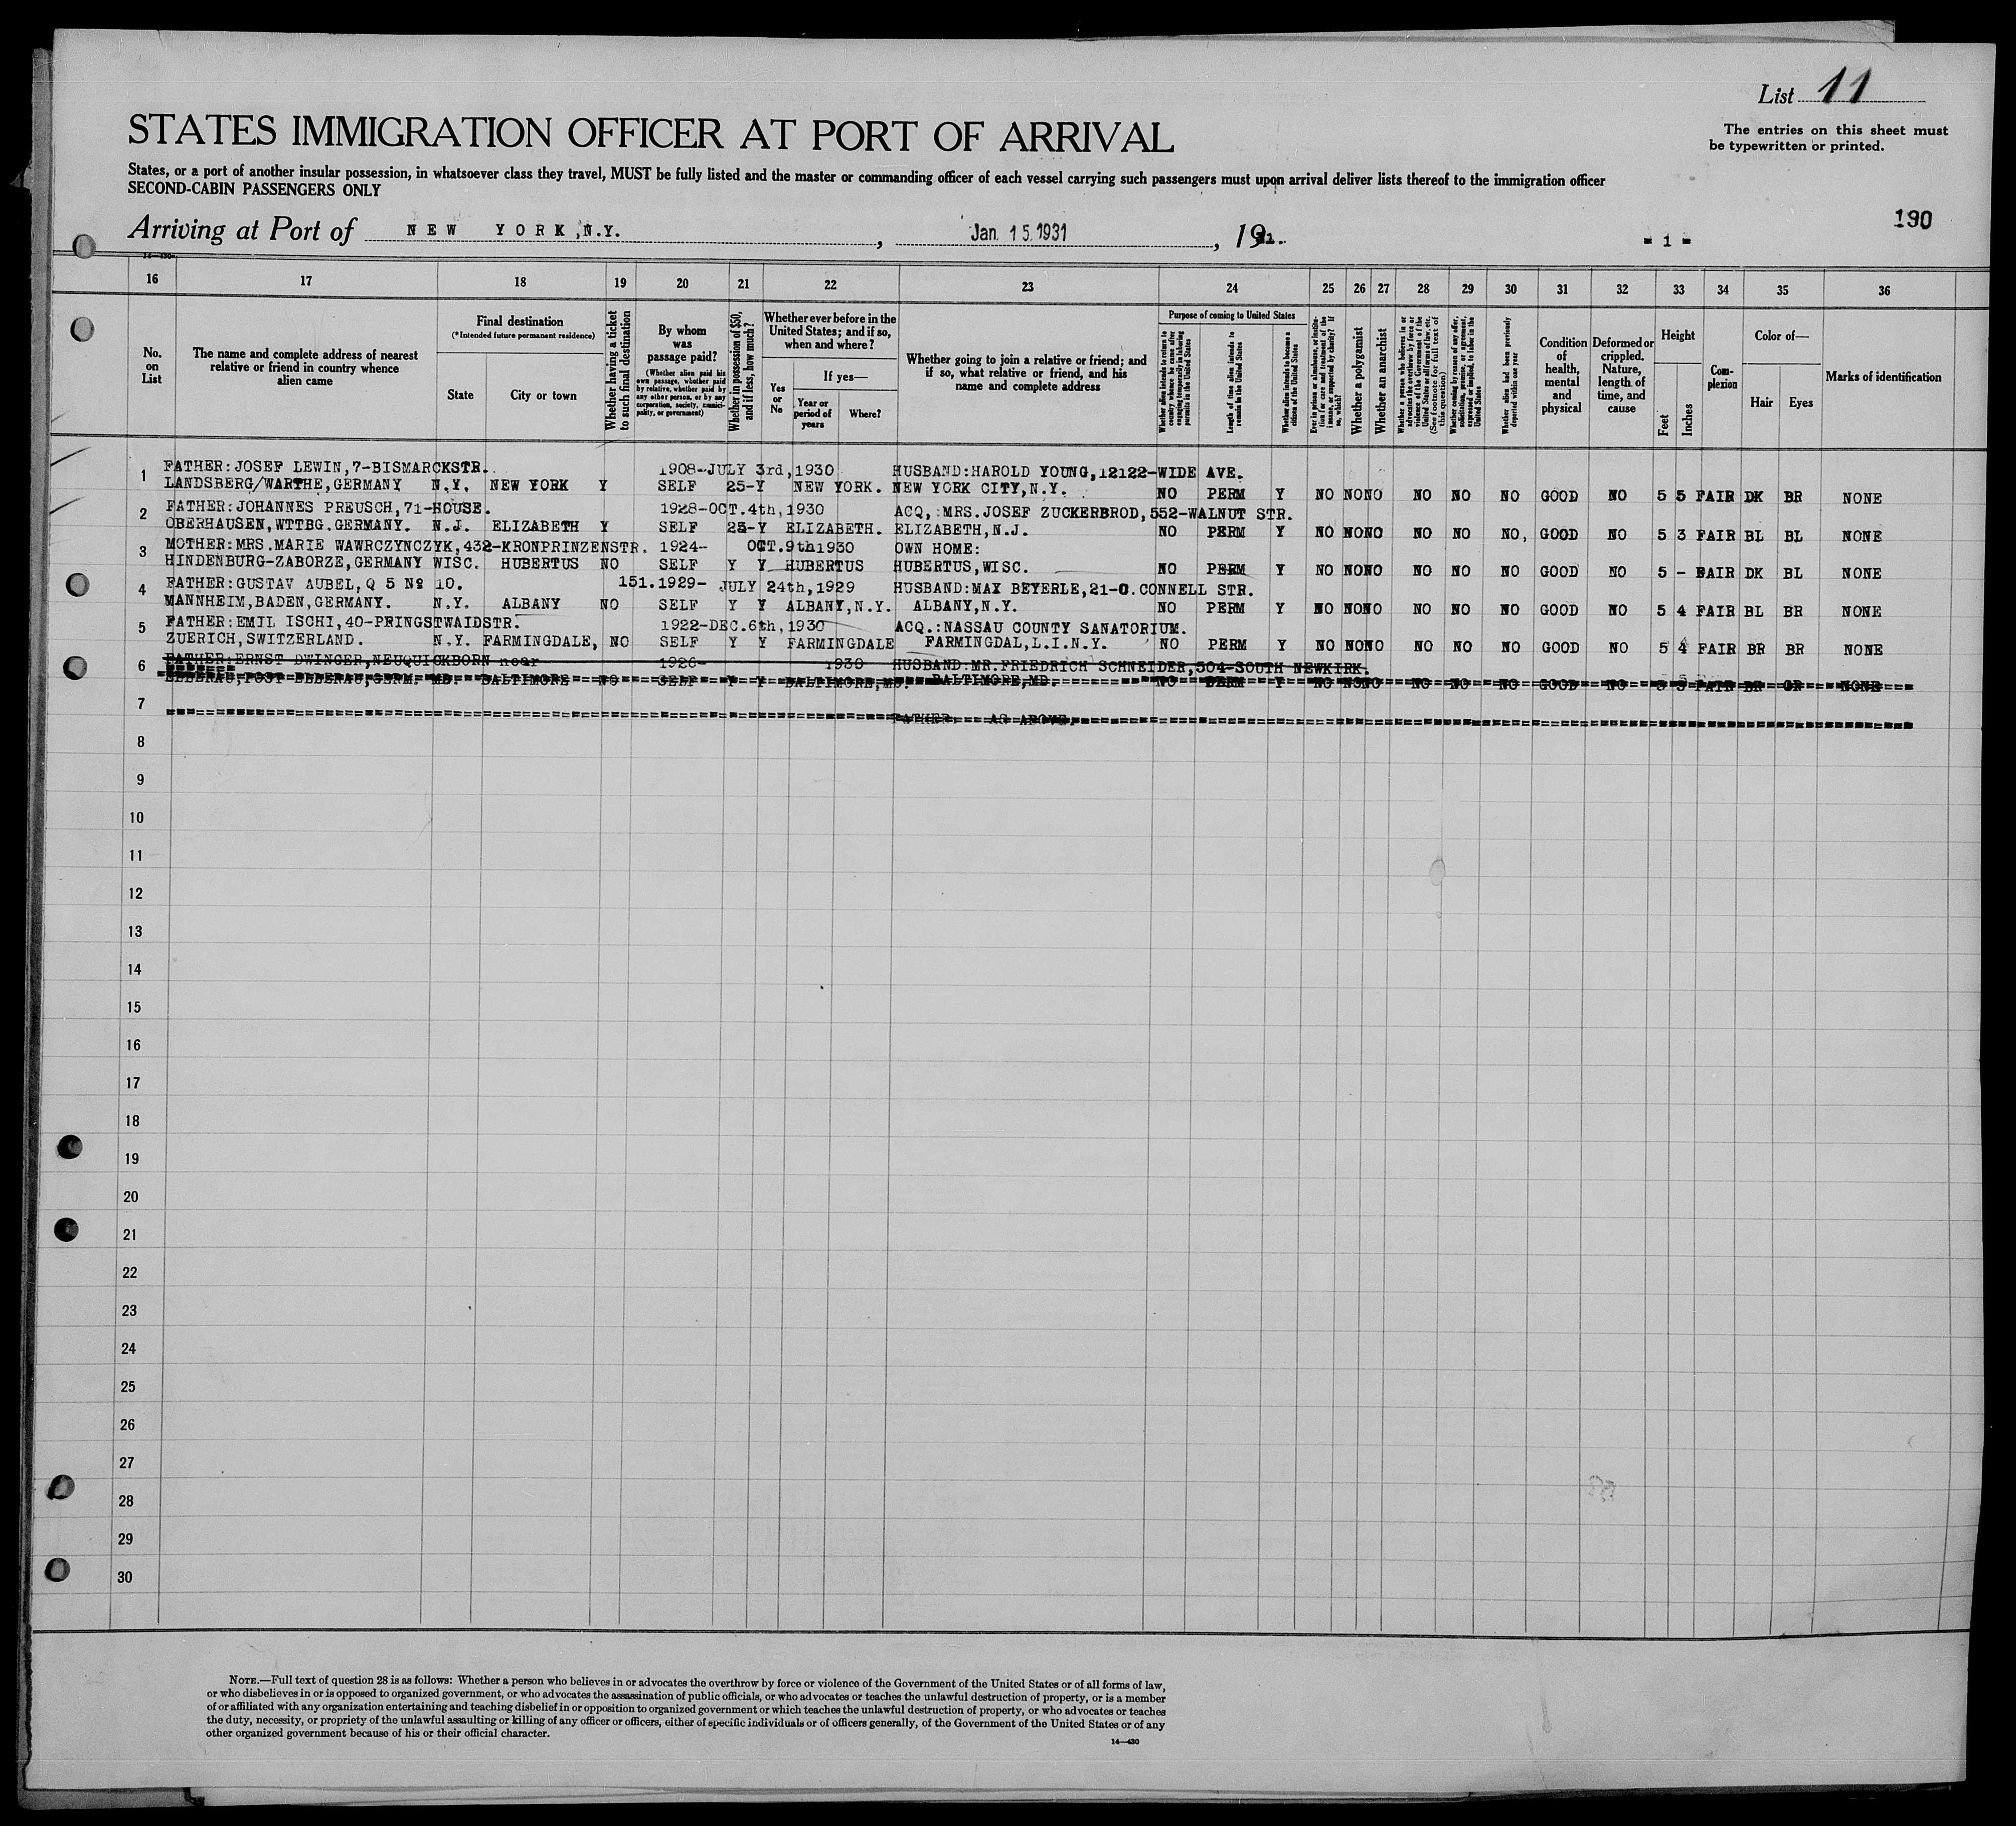 List 11
The entries on this sheet must
be typewritten or printed.
STATES IMMIGRATION OFFICER AT PORT OF ARRIVAL
States, or a port of another insular possession, in whatsoever class they travel, MUST be fully listed and the master or commanding officer of each vessel carrying such passengers must upon arrival deliver lists thereof to the immigration officer
SECOND-CABIN PASSENGERS ONLY
190
Arriving at Port of NEW YORK, N.Y. , Jan 15 1931 , 19
- 1 -
14-430
16 17 18 19 20 21 22 23 24 25 26 27 28 29 30 31 32 33 34 35 36
No. on List
The name and complete address of nearest relative or friend in country whence alien came
Final destination
(*Intended future permanent residence)
State
City or town
Whether having a ticket to such final destination
By whom was passage paid?
(Whether alien paid his own passage, whether paid by relative, whether paid by any other person, or by any corporation, society, municipality, or government)
Whether in possession of $50, and if less, how much?
Whether ever before in the United States; and if so, when and where?
Yes or No
If yes—
Year or period of years
Where?
Whether going to join a relative or friend; and if so, what relative or friend, and his name and complete address
Purpose of coming to United States
Whether alien intends to return to country whence he came after engaging temporarily in laboring pursuits in the United States
Length of time alien intends to remain in the United States
Whether alien intends to become a citizen of the United States
Ever in prison or almshouse, or institution for care and treatment of the insane, or supported by charity? If so, which?
Whether a polygamist
Whether an anarchist
Whether a person who believes in or advocates the overthrow by force or violence of the Government of the United States or all forms of law, etc. (See footnote for full text of this question)
Whether coming by reason of any offer, solicitation, promise, or agreement, expressed or implied, to labor in the United States
Whether alien had been previously deported within one year
Condition of health, mental and physical
Deformed or crippled. Nature, length of time, and cause
Height
Feet
Inches
Complexion
Color of—
Hair
Eyes
Marks of identification
FATHER:JOSEF LEWIN,7-BISMARCKSTR. 1908-JULY 3rd,1930 HUSBAND:HAROLD YOUNG,12122-WIDE AVE.
1 LANDSBERG/WARTHE,GERMANY N.Y. NEW YORK Y SELF 25-Y NEW YORK. NEW YORK CITY,N.Y. NO PERM Y NO NO NO NO NO NO GOOD NO 5 5 FAIR DK BR NONE
FATHER:JOHANNES PREUSCH,71-HOUSE. 1928-OCT.4th,1930 ACQ, MRS.JOSEF ZUCKERBROD,552-WALNUT STR.
2 OBERHAUSEN,WTTBG.GERMANY. N.J. ELIZABETH Y SELF 25-Y ELIZABETH. ELIZABETH,N.J. NO PERM Y NO NO NO NO NO NO, GOOD NO 5 3 FAIR BL BL NONE
MOTHER:MRS.MARIE WAWRCZYNCZYK,432-KRONPRINZENSTR. 1924- OCT.9th1930 OWN HOME:
3 HINDENBURG-ZABORZE,GERMANY WISC. HUBERTUS NO SELF Y Y HUBERTUS HUBERTUS,WISC. NO PERM Y NO NO NO NO NO NO GOOD NO 5 - FAIR DK BL NONE
FATHER:GUSTAV AUBEL,Q 5 Nº 10. 151.1929- JULY 24th,1929 HUSBAND:MAX BEYERLE,21-O.CONNELL STR.
4 MANNHEIM,BADEN,GERMANY. N.Y. ALBANY NO SELF Y Y ALBANY,N.Y. ALBANY,N.Y. NO PERM Y NO NO NO NO NO NO GOOD NO 5 4 FAIR BL BR NONE
FATHER:EMIL ISCHI,40-PRINGSTWAIDSTR. 1922-DEC.6th,1930 ACQ.:NASSAU COUNTY SANATORIUM.
5 ZUERICH,SWITZERLAND. N.Y. FARMINGDALE, NO SELF Y Y FARMINGDALE FARMINGDAL,L.I.N.Y. NO PERM Y NO NO NO NO NO NO GOOD NO 5 4 FAIR BR BR NONE
6 FATHER:ERNST DWINGER,NEUQUICKBORN near 1926- 1930 HUSBAND:MR.FRIEDRICH SCHNEIDER,504-SOUTH NEWKIRK.
GERM. MD. BALTIMORE NO SELF Y Y BALTIMORE,MD. BALTIMORE,MD. NO PERM Y NO NO NO NO NO NO GOOD NO 5 5 FAIR BR GR NONE
7 FATHER: AS ABOVE.
8
9
10
11
12
13
14
15
16
17
18
19
20
21
22
23
24
25
26
27
28
29
30
NOTE.—Full text of question 28 is as follows: Whether a person who believes in or advocates the overthrow by force or violence of the Government of the United States or of all forms of law,
or who disbelieves in or is opposed to organized government, or who advocates the assassination of public officials, or who advocates or teaches the unlawful destruction of property, or is a member
of or affiliated with any organization entertaining and teaching disbelief in or opposition to organized government or which teaches the unlawful destruction of property, or who advocates or teaches
the duty, necessity, or propriety of the unlawful assaulting or killing of any officer or officers, either of specific individuals or of officers generally, of the Government of the United States or of any
other organized government because of his or their official character.
14—430